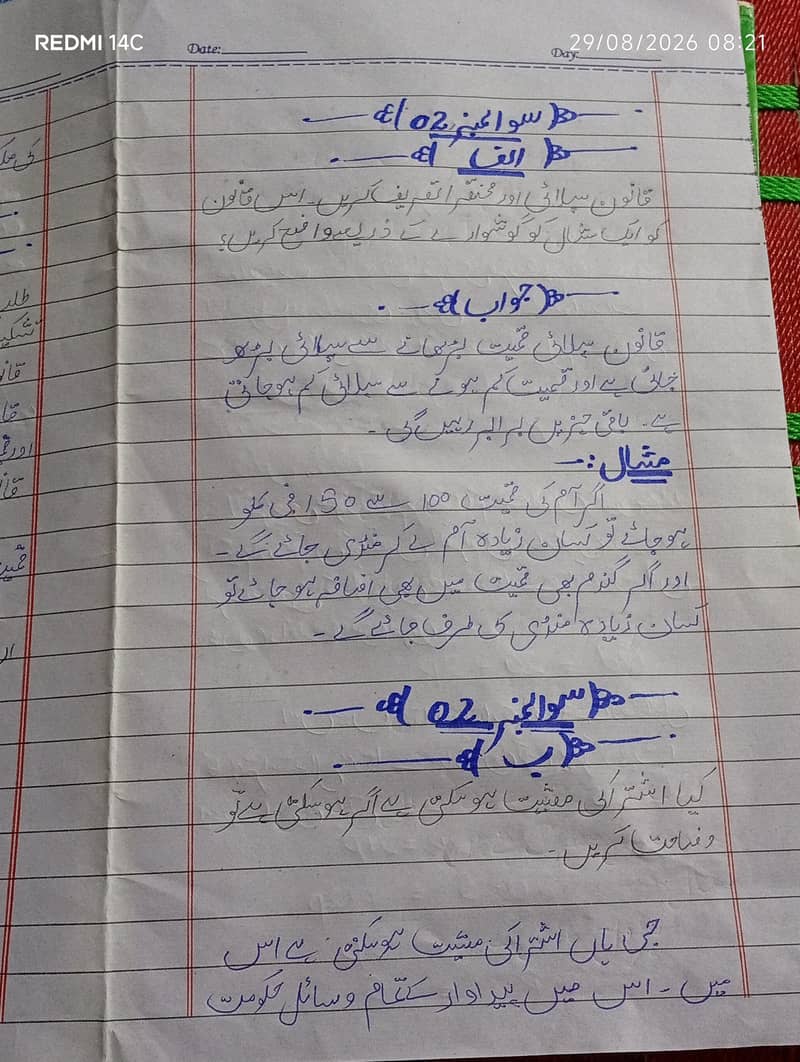 REDMI 14C
29/08/2026 08:21
Date:
Day:
سوالنمبر 02
الف
قانون سپلائی اور مختصر اتعریف کریں۔ اس قانون
کو ایک مثال کو گوشوارے کے ذریعے واضح کریں؟
جواب
قانون سپلائی قمیت بڑھانے سے سپلائی بڑھ
جاتی ہے اور قمیت کم ہونے سے سپلائی کم ہو جاتی
ہے۔ باقی چیزیں برابر رہیں گی۔
مثال :-
اگر آم کی قمیت 100 سے 150 فی کلو
ہو جائے تو کسان زیادہ آم لے کر منڈی جائے گے۔
اور اگر گندم بھی قمیت میں بھی اضافہ ہو جائے تو
کسان زیادہ منڈی کی طرف جائے گے۔
سوالنمبر 02
ب
کیا اشتراکی معیثیت ہو سکتی ہے اگر ہو سکتی ہے تو
وضاحت کریں۔
جی ہاں اشتراکی معیثیت ہو سکتی ہے اس
میں۔ اس میں پیداوار کے تمام وسائل حکومت